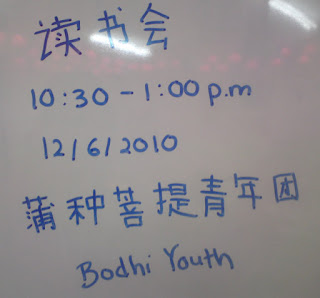 读书会
10:30 - 1:00 p.m
12/6/2010
蒲种菩提青年团
Bodhi Youth